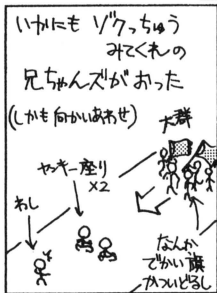 いかにも ゾクっちゅう
みてくれの
兄ちゃんズがおった
(しかも向かいあわせ)
大群
ヤンキー座り
×2
わし
なんか
でかい旗
かついどるし